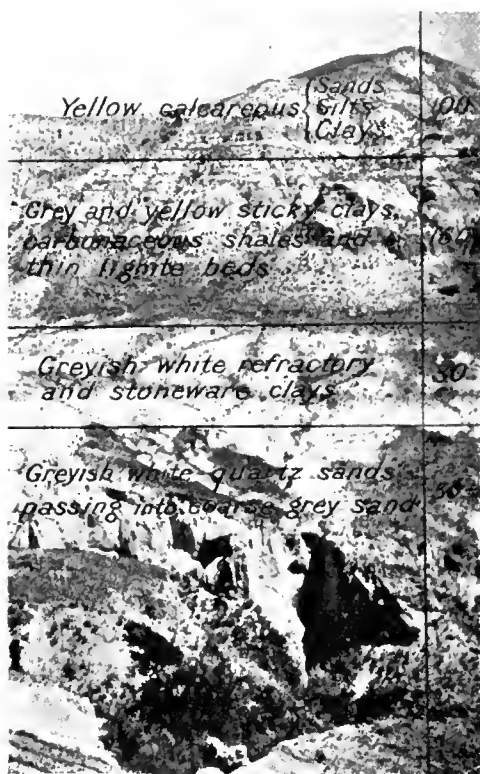 Yellow calcareous { Sands
Silts
Clays
100
Grey and yellow sticky clays,
carbonaceous shales and
thin lignite beds
Greyish white refractory
and stoneware clays
30
Greyish white quartz sands
passing into coarse grey sand